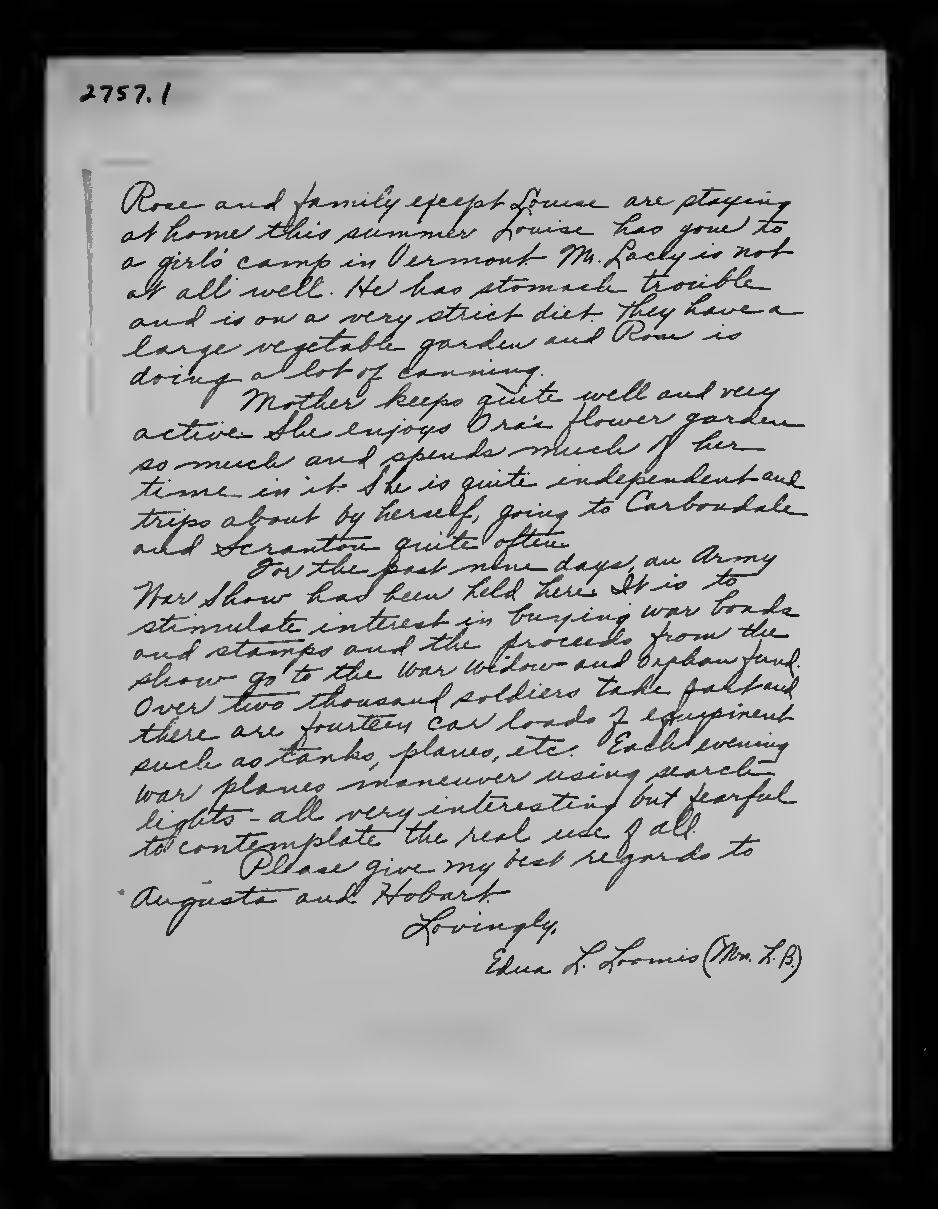 2757.1
Rose and family except Louise are staying
at home this summer Louise has gone to
a girl's camp in Vermont. Mr. Lacky is not
at all well. He has stomach trouble
and is on a very strict diet. They have a
large vegetable garden and Rose is
doing a lot of canning.
Mother keeps quite well and very
active. She enjoys Ora's flower garden
so much and spends much of her
time in it. She is quite independent and
trips about by herself, going to Carbondale
and Scranton quite often.
For the past nine days, an Army
War Show has been held here. It is to
stimulate interest in buying war bonds
and stamps and the proceeds from the
show go to the War Widow and Orphan fund.
Over two thousand soldiers take part and
there are fourteen car loads of equipment
such as tanks, planes, etc. Each evening
war planes maneuver using search
lights - all very interesting but fearful
to contemplate the real use of all.
Please give my best regards to
Augusta and Hobart.
Lovingly,
Edna L. Loomis (Mrs. L.B.)